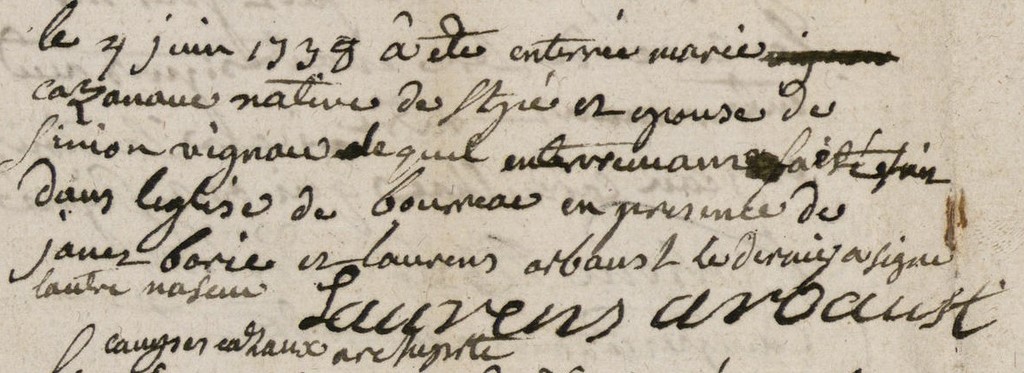 le 4 juin 1738 â eté enterrée marie
cazanaue native de et epouse de
simon vignau lequel enterremant fait
dans leglise de bourreac en presence de
janet borie et laurens arbaust le dernier a signe
lautre na seu Laurens arbaust
cazaux archiprte